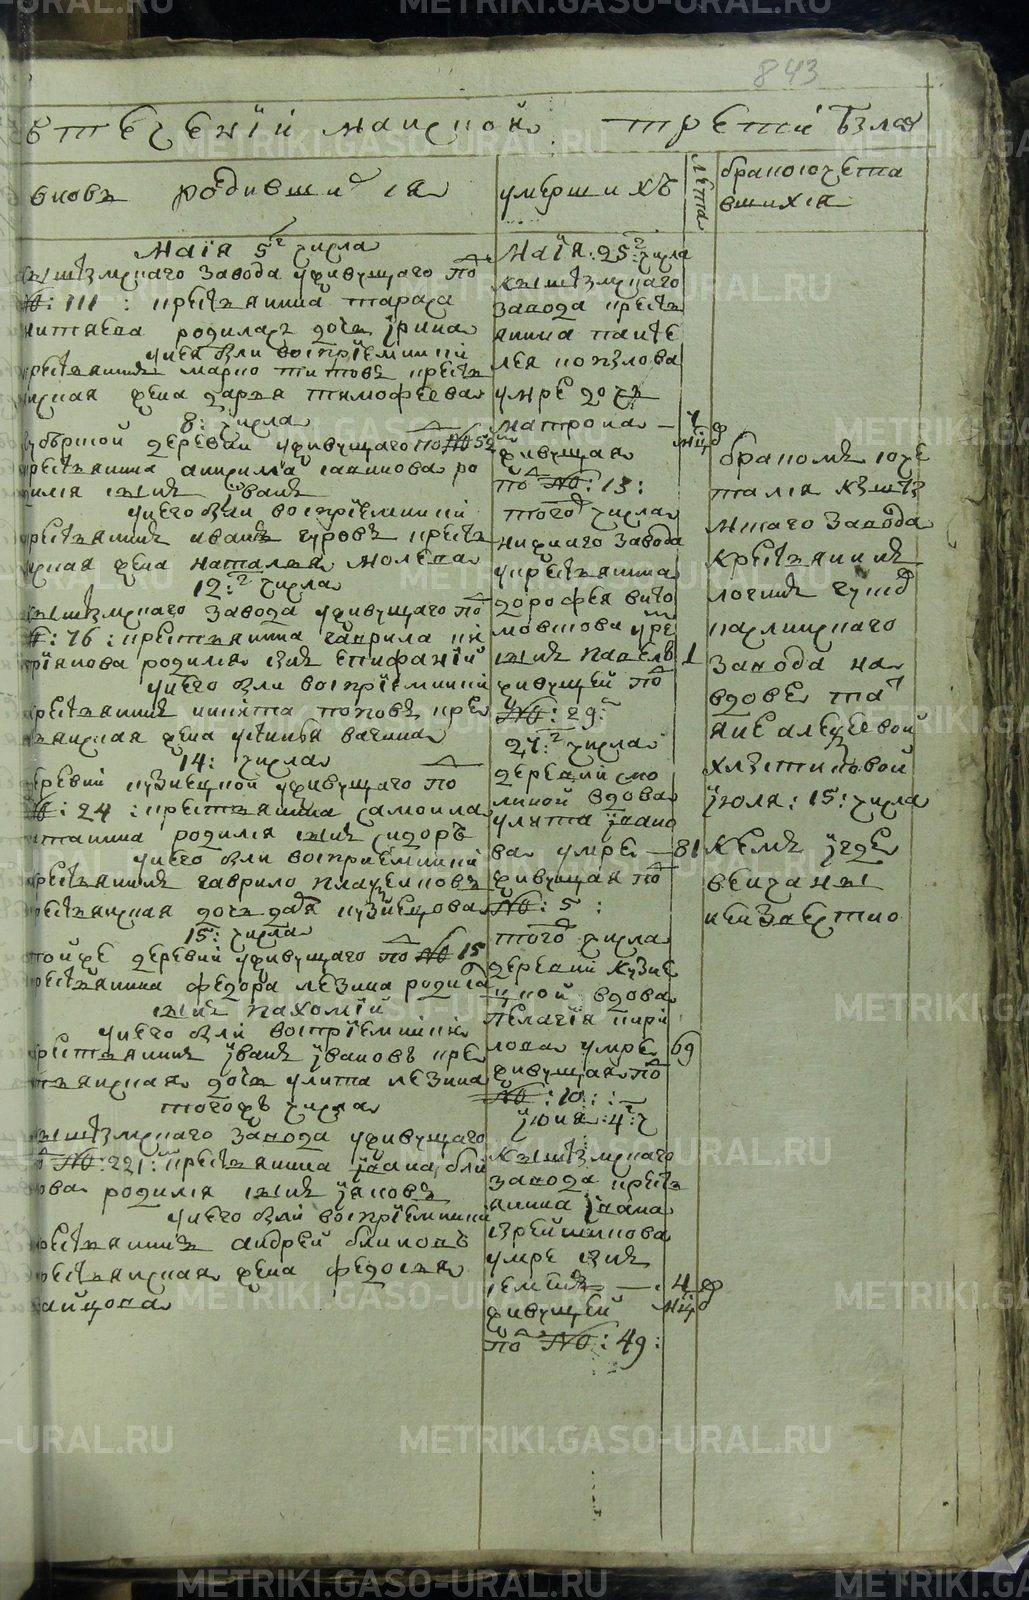 843
в теченіи маиской трети взято
вновь родившихся
умерших
лета
бракосочета
вшихся
Маія 5г числа
кыштымскаго завода живущаго по
№: 111: крестьянина тараса
никитаева родилась дочь ірина
у нея были воспріемники
крестьянинъ марко титовъ крестья
нская жена дарья тимофеева
8: числа
деревни живущаго по № 52
крестьянина ро
дился сынъ іванъ
у него были воспріемники
крестьянинъ иванъ гуровъ крестья
нская жена наталья
12:г числа
кыштымскаго завода живущаго по
№: 76: крестьянина гаврила ки
пріянова родился сынъ епифаній
у него были воспріемники
крестьянинъ никита поповъ кре
стьянская жена устинья
14: числа
деревни кузнецкой живущаго по
№: 24: крестьянина самоила
родился сынъ сидоръ
у него были воспріемники
крестьянинъ гаврило
крестьянская дочь дарья кузнецова
15: числа
той же деревни живущаго по № 15
крестьянина федора лезина родился
сынъ пахомій
у него были воспріемники
крестьянинъ іванъ івановъ кре
стьянская дочь улита лезина
тогожъ числа
кыштымскаго завода живущаго
по №: 221: крестьянина івана бли
нова родился сынъ іяковъ
у него были воспріемники
крестьянинъ андрей блиновъ
крестьянская жена федосья
зайцова
Маія: 25:г числа
кыштымскаго
завода крестья
нина панте
лея козлова
умре дочь
матрона —
живущая
по №: 13:
того числа
нижнаго завода
у крестьянина
дорофея вито
мовскова умре
сынъ павелъ 1
живущей по
№: 29:
27:г числа
деревни смо
линой вдова
улита івано
ва умре — 81
живущая по
№: 5:
того числа
деревни кузне
цкой вдова
пелагія кири
лова умре 69
живущая по
№: 10::
іюня: 4:г ч
кыштымскаго
завода крестья
нина івана
умре сынъ
семенъ — 4
живущей
по №: 49:
бракомъ соче
тался кышты
мскаго завода
крестьянинъ
логинъ
каслинскаго
завода на
вдове тат
яне алексеевой
іюля: 15: числа
кемъ і где
венчаны
неизвестно